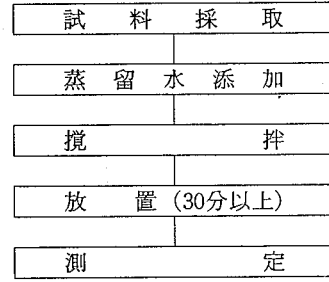 試料採取
蒸留水添加
撹拌
放置(30分以上)
測定